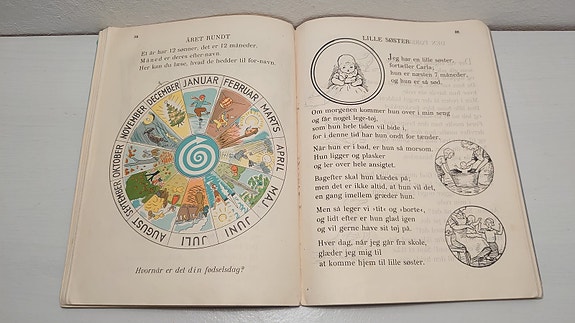 ÅRET RUNDT
Et år har 12 sønner, det er 12 måneder.
Måned er deres efter-navn.
Her kan du læse, hvad de hedder til for-navn.
JANUAR
FEBRUAR
MARTS
APRIL
MAJ
JUNI
JULI
AUGUST
SEPTEMBER
OKTOBER
NOVEMBER
DECEMBER
Hvornår er det din fødselsdag?
LILLE SØSTER
Jeg har en lille søster,
fortæller Carla,
hun er næsten 7 måneder,
og hun er så sød.
Om morgenen kommer hun over i min seng
og får noget lege-tøj,
som hun hele tiden vil bide i,
for i denne tid har hun ondt for tænder.
Når hun er i bad, er hun så morsom.
Hun ligger og plasker
og ler over hele ansigtet.
Bagefter skal hun klædes på;
men det er ikke altid, at hun vil det,
en gang imellem græder hun.
Men så leger vi »tit« og »borte«,
og lidt efter er hun glad igen
og vil gerne have sit tøj på.
Hver dag, når jeg går fra skole,
glæder jeg mig til
at komme hjem til lille søster.